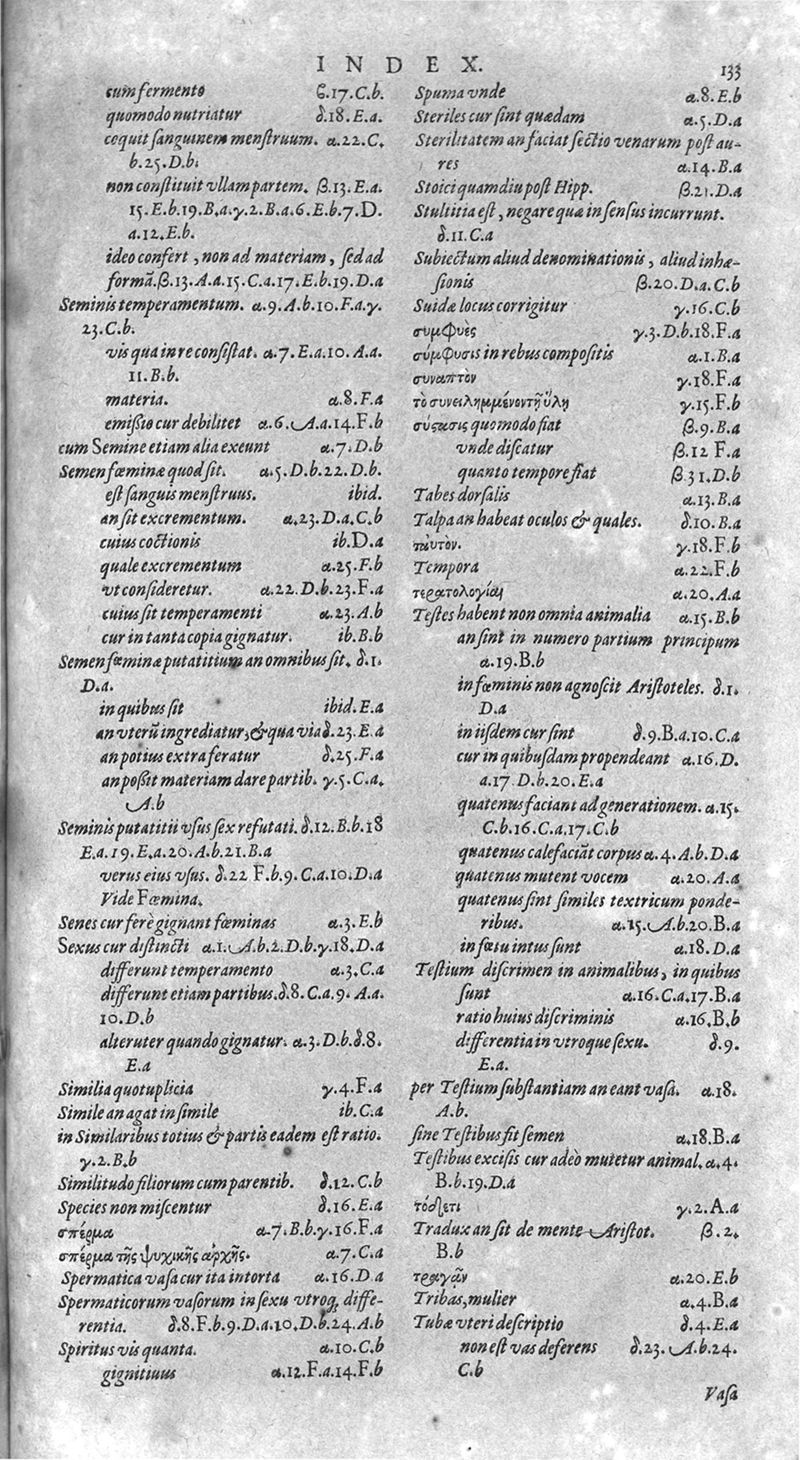 INDEX.
133
cum fermento ϐ.17.C.b.
quomodo nutriatur δ.18.E.a.
coquit ſanguinem menſtruum. α.22.C.
b.25.D.b.
non conſtituit vllam partem. β.13.E.a.
15.E.b.19.B.a.γ.2.B.a.6.E.b.7.D.
a.12.E.b.
ideo confert, non ad materiam, ſed ad
formã.β.13.A.a.15.C.a.17.E.b.19.D.a
Seminis temperamentum. α.9.A.b.10.F.a.γ.
23.C.b.
vis qua in re conſiſtat. α.7.E.a.10.A.a.
11.B.b.
materia. α.8.F.a
emißio cur debilitet α.6.A.a.14.F.b
cum Semine etiam alia exeunt α.7.D.b
Semen fœminæ quod ſit. α.5.D.b.22.D.b.
eſt ſanguis menſtruus. ibid.
an ſit excrementum. α.23.D.a.C.b
cuius coctionis ib.D.a
quale excrementum α.25.F.b
vt conſideretur. α.22.D.b.23.F.a
cuius ſit temperamenti α.23.A.b
cur in tanta copia gignatur. ib.B.b
Semen fœminæ putatitium an omnibus ſit. δ.1.
D.a.
in quibus ſit ibid.E.a
an vterũ ingrediatur, & qua via δ.23.E.a
an potius extra feratur δ.25.F.a
an poßit materiam dare partib. γ.5.C.a.
A.b
Seminis putatitii vſus ſex refutati. δ.12.B.b.18
E.a.19.E.a.20.A.b.21.B.a
verus eius vſus. δ.22 F.b.9.C.a.10.D.a
Vide Fœmina.
Senes cur ferè gignant fœminas α.3.E.b
Sexus cur diſtincti α.1.A.b.2.D.b.γ.18.D.a
differunt temperamento α.3.C.a
differunt etiam partibus.δ.8.C.a.9.A.a.
10.D.b
alteruter quando gignatur. α.3.D.b.δ.8.
E.a
Similia quotuplicia γ.4.F.a
Simile an agat in ſimile ib.C.a
in Similaribus totius & partis eadem eſt ratio.
γ.2.B.b
Similitudo filiorum cum parentib. δ.12.C.b
Species non miſcentur δ.16.E.a
σπέρμα α.7.B.b.γ.16.F.a
σπέρμα τῆς ψυχικῆς ἀρχῆς. α.7.C.a
Spermatica vaſa cur ita intorta α.16.D a
Spermaticorum vaſorum in ſexu vtroq; diffe-
rentia. δ.8.F.b.9.D.a.10.D.b.24.A.b
Spiritus vis quanta. α.10.C.b
gignitiuus α.12.F.a.14.F.b
Spuma vnde α.8.E.b
Steriles cur ſint quædam α.5.D.a
Sterilitatem an faciat ſectio venarum poſt au-
res α.14.B.a
Stoici quamdiu poſt Hipp. β.21.D.a
Stultitia eſt, negare quæ in ſenſus incurrunt.
δ.11.C.a
Subiectum aliud denominationis, aliud inhæ-
ſionis β.20.D.a.C.b
Suidæ locus corrigitur γ.16.C.b
συμφυὲς γ.3.D.b.18.F.a
σύμφυσις in rebus compoſitis α.1.B.a
συναπτὸν γ.18.F.a
τὸ συνειλημμένον τῇ ὕλῃ γ.15.F.b
σύστασις quomodo fiat β.9.B.a
vnde diſcatur β.12 F.a
quanto tempore fiat β.31.D.b
Tabes dorſalis α.13.B.a
Talpa an habeat oculos & quales. δ.10.B.a
ταὐτὸν. γ.18.F.b
Tempora α.22.F.b
τερατολογίαι α.20.A.a
Teſtes habent non omnia animalia α.15.B.b
an ſint in numero partium principum
α.19.B.b
in fœminis non agnoſcit Ariſtoteles. δ.1.
D.a
in iiſdem cur ſint δ.9.B.a.10.C.a
cur in quibuſdam propendeant α.16.D.
a.17 D.b.20.E.a
quatenus faciant ad generationem. α.15.
C.b.16.C.a.17.C.b
quatenus calefaciãt corpus α.4.A.b.D.a
quatenus mutent vocem α.20.A.a
quatenus ſint ſimiles textricum ponde-
ribus. α.15.A.b.20.B.a
in fœtu intus ſunt α.18.D.a
Teſtium diſcrimen in animalibus, in quibus
ſunt α.16.C.a.17.B.a
ratio huius diſcriminis α.16.B.b
differentia in vtroque ſexu. δ.9.
E.a.
per Teſtium ſubſtantiam an eant vaſa. α.18.
A.b.
ſine Teſtibus fit ſemen α.18.B.a
Teſtibus exciſis cur adeò mutetur animal. α.4.
B.b.19.D.a
γ.2.A.a
Tradux an ſit de mente Ariſtot. β.2.
B.b
τραγᾶν α.20.E.b
Tribas, mulier α.4.B.a
Tubæ vteri deſcriptio δ.4.E.a
non eſt vas deferens δ.23.A.b.24.
C.b
Vaſa